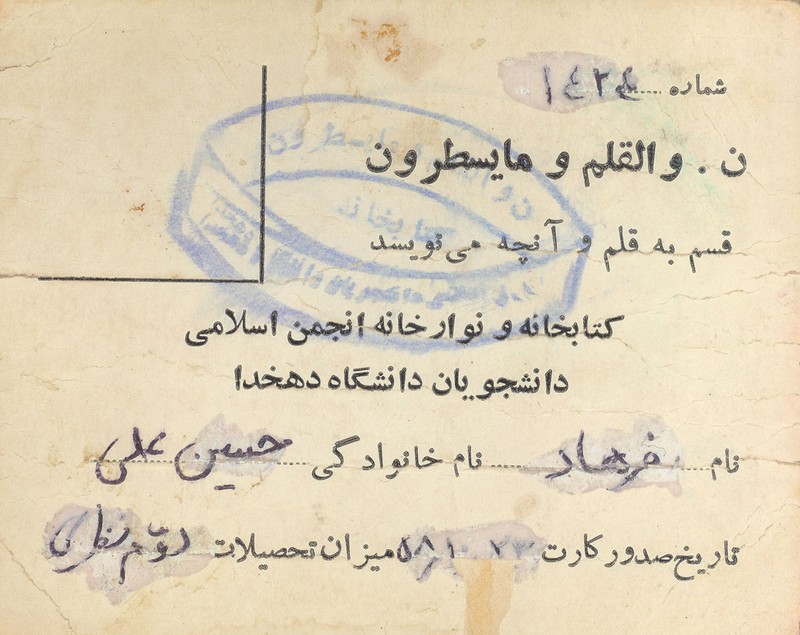 شماره ۱۴۲۴
ن . والقلم و مایسطرون
قسم به قلم و آنچه می نویسد
کتابخانه و نوارخانه انجمن اسلامی
دانشجویان دانشگاه دهخدا
نام فرهاد نام خانوادگی حسین علی
تاریخ صدور کارت ۲۳ ۱۰ ۵۸ میزان تحصیلات دوم نظری
ن و القلم و مایسطرون
کتابخانه